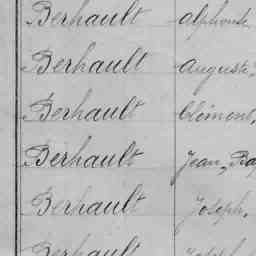 Berhault Alphonse
Berhault Auguste
Berhault Clément,
Berhault Jean, Ba
Berhault Joseph,
Berhault Joseph